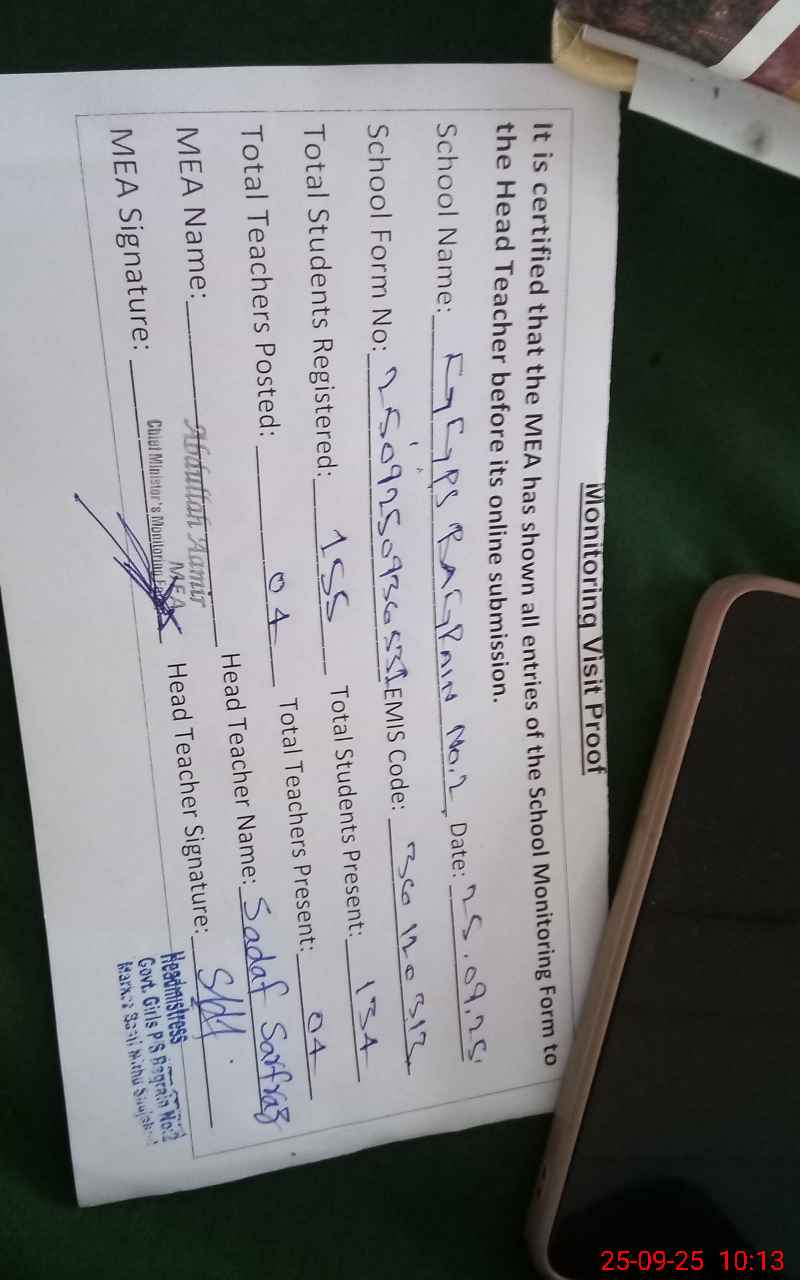 Monitoring Visit Proof
It is certified that the MEA has shown all entries of the School Monitoring Form to
the Head Teacher before its online submission.
School Name: GGPS BAGRAIN No.2 Date: 25.09.25
School Form No: EMIS Code:
Total Students Registered: 155 Total Students Present: 134
Total Teachers Posted: 04 Total Teachers Present: 04
MEA Name: Abdullah Aamir Head Teacher Name: Sadaf Sarfraz
MEA
Chief Minister's Monitoring
MEA Signature: Head Teacher Signature:
Headmistress
Govt. Girls P/S Bagrain No:2
25-09-25 10:13